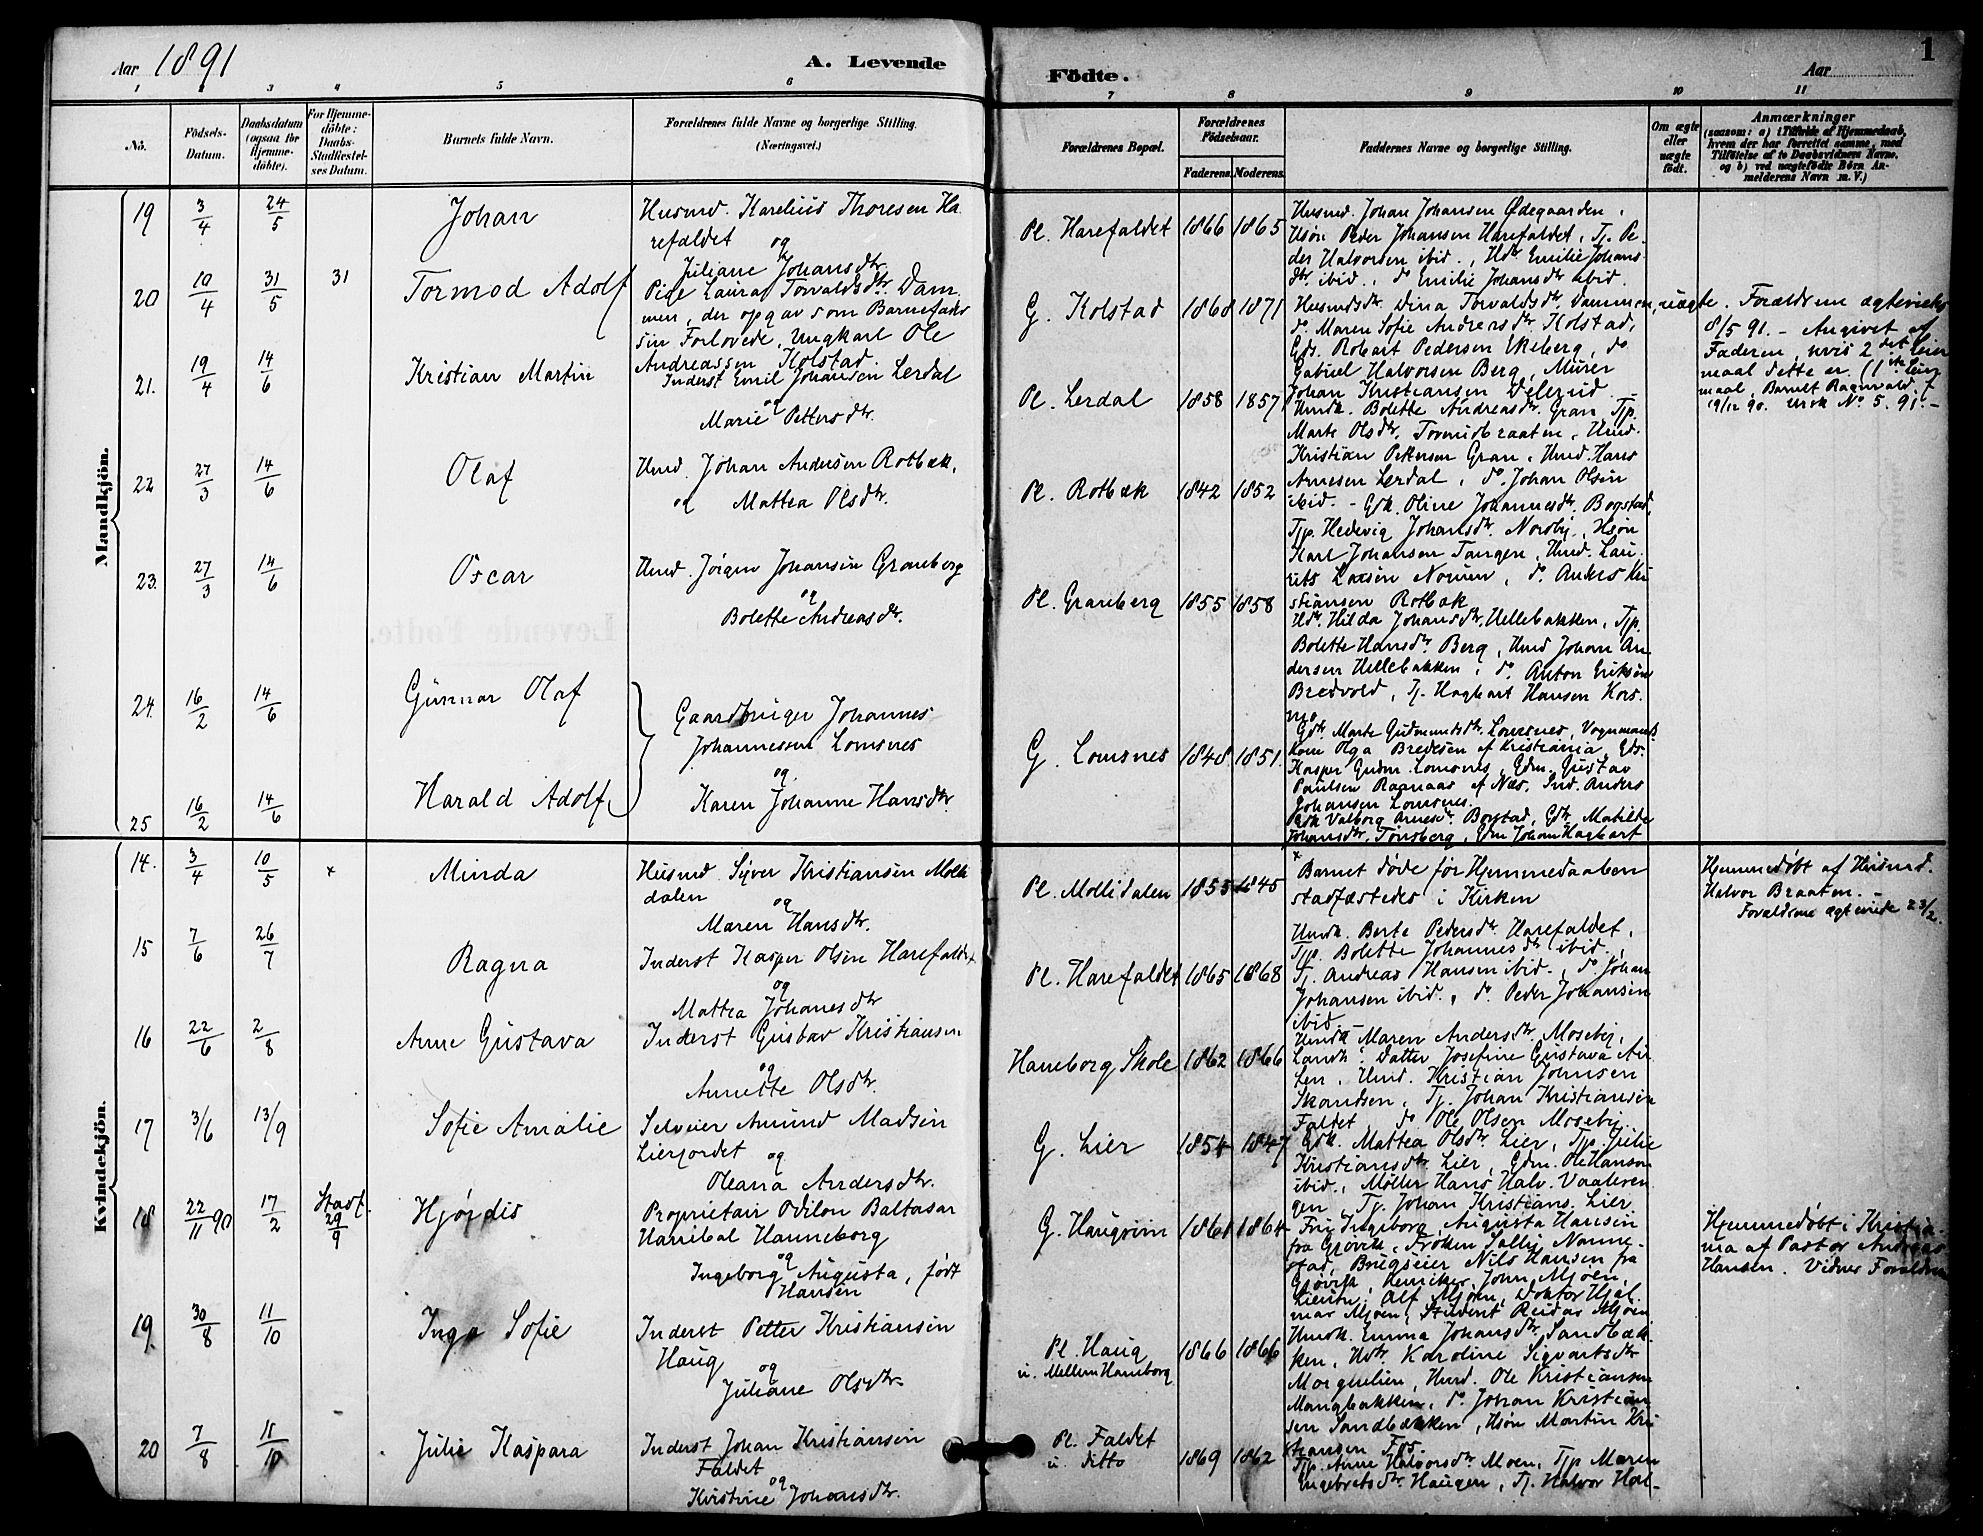 Aar 1891
A. Levende
Födte.
Aar
1
1 2 3 4 5 6 7 8 9 10 11
No.
Födsels-Datum.
Daabsdatum (ogsaa for Hjemme-döbte).
For Hjemme-döbte: Daabs-Stadfæstel-ses Datum.
Barnets fulde Navn.
Forældrenes fulde Navne og borgerlige Stilling.
(Næringsvei.)
Forældrenes Bopæl.
Forældrenes Födselsaar.
Faderens. Moderens.
Faddernes Navne og borgerlige Stilling.
Om ægte eller uægte födt.
Anmærkninger
(saasom: a) i Tilfælde af Hjemmedaab, hvem der har forrettet samme, med Tilföielse af to Daabsvidners Navne, og b) ved uægtefödte Börn Anmelderens Navn m. V.)
Mandkjön.
19 3/4 24/5 Johan
Husmd. Karelius Thoresen Ha
refaldet og
Juliane Johansdtr.
Pl. Harefaldet 1866 1865
Husmd. Johan Johansen Ødegaarden,
Hsøn Peder Johansen Harefaldet, Tj. Pe
der Halvorsen ibid., Hdtr Emilie Johans
dtr. ibid., do Emilie Johansdtr ibid.
20 10/4 31/5 31 Tormod Adolf
Pige Laura Torvaldsdtr. Dam
men, der opgav som Barnefader
sin Forlovede, Ungkarl Ole
Andreassen Kolstad.
G. Kolstad 1868 1871
Husmdsdtr. Dina Torvaldsdtr. Dammen,
do Maren Sofie Andreasdtr Kolstad,
Gds. Robart Pedersen Ekeberg, do
Gabriel Halvorsen Berg, Murer
Johan Kristiansen Delerud.
uægte. Forældrene ægteviede
8/5 91. - Angivet af
Faderen, hvis 2det Leier
maal dette er. (1ste Leier
maal, Barnet Ragnvald, f.
19/12 90. No 5. 91. -
21. 19/4 14/6 Kristian Martin
Inderst Emil Johansen Lerdal
og
Marie Pettersdtr.
Pl. Lerdal 1858 1857
Hmdk. Bolette Andreasdtr. Gran, Tjp.
Marte Olsdtr. Tormudbraaten, Hmd.
Kristian Pettersen Gran, Hmd. Hans
Arnesen Lerdal, do Johan Olsen
ibid. -
22 27/3 14/6 Olaf
Hmd. Johan Andersen Rotbæk,
og Mattea Olsdtr.
Pl. Rotbæk 1842 1852
Gdk. Oline Johannesdtr. Bogstad,
Tjp. Hedevig Johansdtr. Nordby, Hsøn
Karl Johansen Tangen, Hmd. Lau
rits Larsen Nomen, do. Anders Kri
stiansen Rotbæk
23. 27/3 14/6 Oscar
Hmd. Jörgen Johansen Graneberg
og
Bolette Andreasdtr.
Pl. Graneberg 1855 1858
Hdtr. Hilda Johansdtr. Hellebækken, Tjp.
Bolette Hansdtr. Berg, Hmd Johan An
dersen Hellebækken, do. Anton Eriksen
Bredvold, Tj. Hagbart Hansen Kors
mo
24. 16/2 14/6 Gunnar Olaf
25 16/2 14/6 Harald Adolf
Gaardbruger Johannes
Johannessen Lomsnes
og
Karen Johanne Hansdtr.
G. Lomsnes 1848 1851.
Gdtr. Marte Gudmundsdtr. Lomsnes, Vognmands
kone Olga Bredesen af Kristiania, Gds.
Kasper Gudm. Lomsnes, Gdm. Gustav
Paulsen Ragnaas af Næs, Ind. Anders
Johansen Lomsnes.
Gdk Valborg Arnesdtr. Bogstad, Gdtr. Matilde
Johansdtr. Tønsberg, Gdm Johan Hagbart
Kvindekjön.
14. 3/4 10/5 x Minda
Husmd Syver Kristiansen Molli
dalen og
Maren Hansdtr.
Pl. Mollidalen 1855 1845
x Barnet døde før Hjemmedaaben
stadfæstedes i Kirken
Hjemmedøbt af Husmd.
Halvor Braaten. -
Forældrene ægteviede 23/2.
15 7/6 26/7 Ragna
Inderst Kasper Olsen Harefaldet
og
Mattea Johanesdtr
Pl. Harefaldet 1865 1868
Hmdk. Berte Pedersdtr. Harefaldet,
Tjp. Bolette Johannesdtr ibid.,
Tj. Andreas Hansen ibid., do Johan
Johansen ibid., do. Peder Johansen
ibid. -
16 22/6 2/8 Anne Gustava
Inderst Gustav Kristiansen
og
Annette Olsdtr.
Haneborg Skole 1862 1866
Hmdk Maren Andersdtr. Moseby,
Landh. Datter Josefine Gustava An
sen, Hmd. Kristian Johnsen
Skandsen, Tj. Johan Kristiansen
Faldet do Ole Olsen Moseby.
17 3/6 13/9 Sofie Amalie
Selveier Amund Madsen
Lierjordet og
Oleana Andersdtr.
G. Lier 1854 1847
Gdk. Mattea Olsdtr. Lier, Tjp. Julie
Kristiansdtr. Lier, Gdm. Ole Hansen
ibid., Møller Hans Halv. Vaaleren
gen, Tj. Johan Kristians. Lier
18 22/11 90 17/2 Stadf. 29/9 Hjørdis
Proprietair Odilon Baltasar
Hanibal Hanneborg
og
Ingeborg Augusta, født
Hansen
G. Haugsrim 1861 1864
Fru Ingeborg Augusta Hansen
fra Gjøvik, Frøken Sally Nanne
stad, Brugseier Nils Hansen fra
Gjøvik, Kemiker John Mjøen,
Lieutn. Alf Mjøen, Doktor Hjal
mar Mjøen, Student Reidar Mjøen
Hjemmedøbt i Kristia
nia af Pastor Andreas
Hansen. Vidner Forældrene
19. 30/8 11/10 Inga Sofie
Inderst Petter Kristiansen
Haug og
Juliane Olsdtr
Pl. Haug
u. Mellem Haneborg 1866 1866
Hmdk. Emma Johansdtr. Sandbæk
ken, Hdtr. Karoline Sigvartsdtr
Morguelien, Hmd. Ole Kristiansen
Mangbækken, do. Johan Kristian
sen Sandbækken, Hsøn Martin Kri
stiansen Fos.
20 7/8 11/10 Julie Kaspara
Inderst Johan Kristiansen
Faldet
og
Kristine Johansdtr.
Pl. Faldet
u. ditto 1869 1862
Tjp. Anne Halvorsdtr Moen, Tjp Maren
Engebretsdtr Haugen, Tj. Halvor Hal-